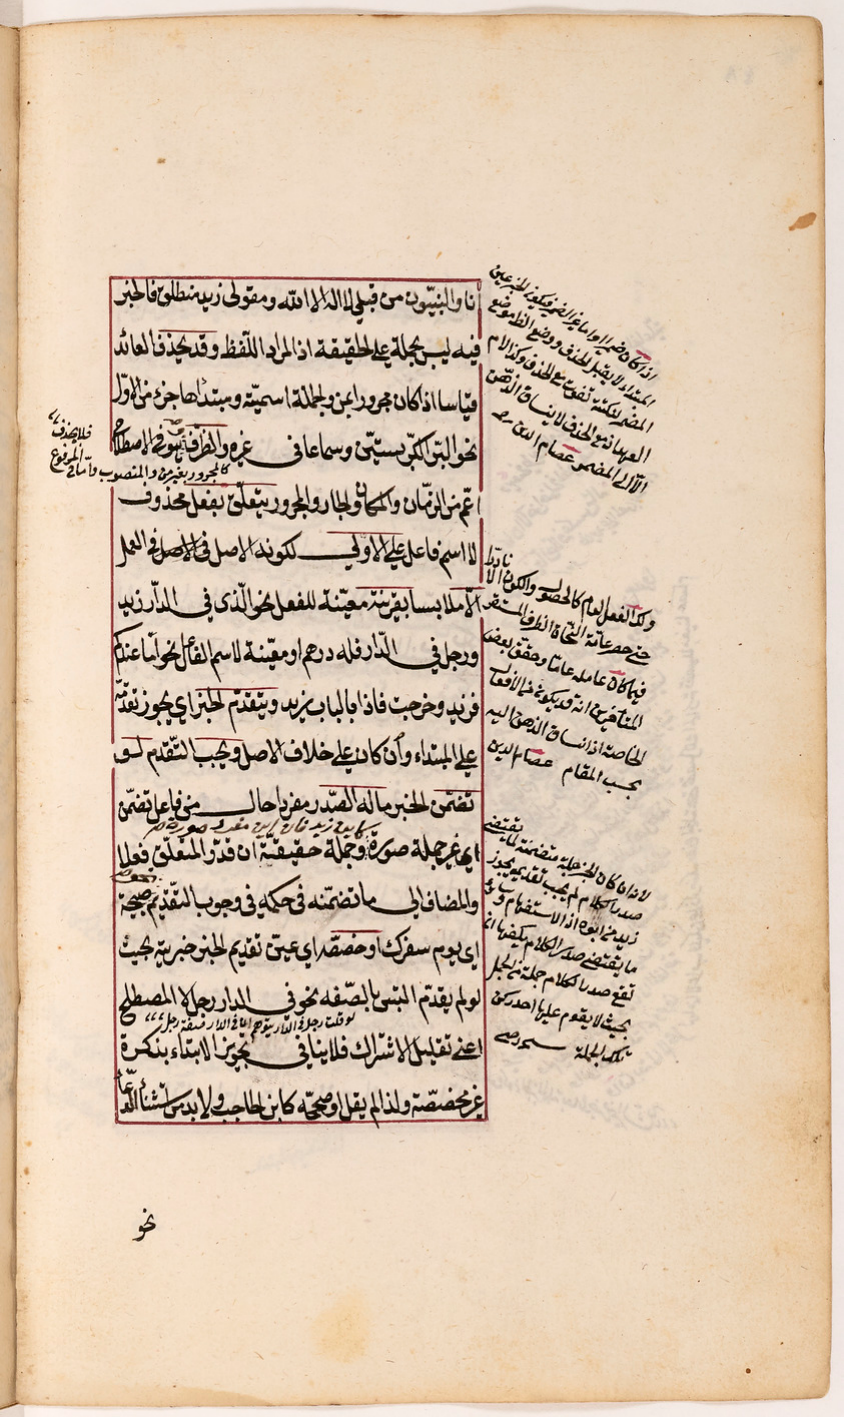 انا والنبيّون من قبلي لا اله الا الله ومقولى زيد منطلق فالخبر
فيه ليس بجملة على الحقيقة اذ المراد اللّفظ وقد يحذف العائد
قياسا اذا كان مجرورا بمن والجملة اسميّة ومبتدأها جزء من الاوّل
نحو البرّ الكرّ بستّين وسماعا في غيره والظّرف هو في الاصطلاح
اعمّ من الزمّان والمكان والجار والمجرور يتعلّق بفعل محذوف
لا اسم فاعل على الاولى لكونه الاصل في العمل
الّا ملابسا بقرينة معيّنة للفعل نحو الّذى في الدّار زيد
ورجل في الدّار فله درهم او معيّنة لاسم الفاعل نحو امّا عندكم
فزيد وخرجت فاذا بالباب زيد ويتقدّم الخبر اي يجوز تقدّمه
على المبتداء وان كان على خلاف الاصل ويجب التّقدم لو
تضمّن الخبر ماله الصّدر مفردا حال من فاعل تضمّن
كاين زيد فان اين مفرد صورة
اى غير جملة صورة وجملة حقيقة ان قدّر المتعلّق فعلا
والمضاف الى ما تضمّنه في حكمه في وجوب التّقديم صبيحة
اى يوم سفرك او خصّصه اى عيّن تقديم الخبر خبريته بحيث
لو لم يقدّم التبس بالصّفه نحو في الدار رجل لا المصطلح
لو قلت رجل في الدار يتوهم ان في الدار صفة رجل
اعنى تقليل الاشتراك فلا ينافي تجويز الابتداء بنكرة
غير مخصّصة ولذا لم يقل او صحّحه كابن الحاجب ولا بد من استثناء
نحو
فلا يحذف
المرفوع
كالمجرور بغير من والمنصوب وامّا في
المبتداء لا يقبل الحذف ووضع الظ موضع
المضمر لنكتة تفوت مع الحذف وكذا لام
العهد فانه مع الحذف لا ينساق الذّهن
الّا الى المضمر عصام الدين
ولذا الفعل العام كالحصول والكون
حتى حصر عامّة النّحاة الظرف المستقر
فيما كان عامله عامّا وحقق بعض
المتأخرين انه قد يكون من الافعال
الخاصة اذا انساق الذهن اليه
بحسب المقام عصام الدين
لانه ان كان الخبر جملة متضمنة لما يقتضى
صدر الكلام لم يجب تقديمه يجوز
زيد من ابوه اذ الاستفهام وسائر
ما يقتضى صدر الكلام يكفيها ان
تقع صدر الكلام جملة من الجمل
بحيث لا يقوم عليها احد ركن
تلك الجملة